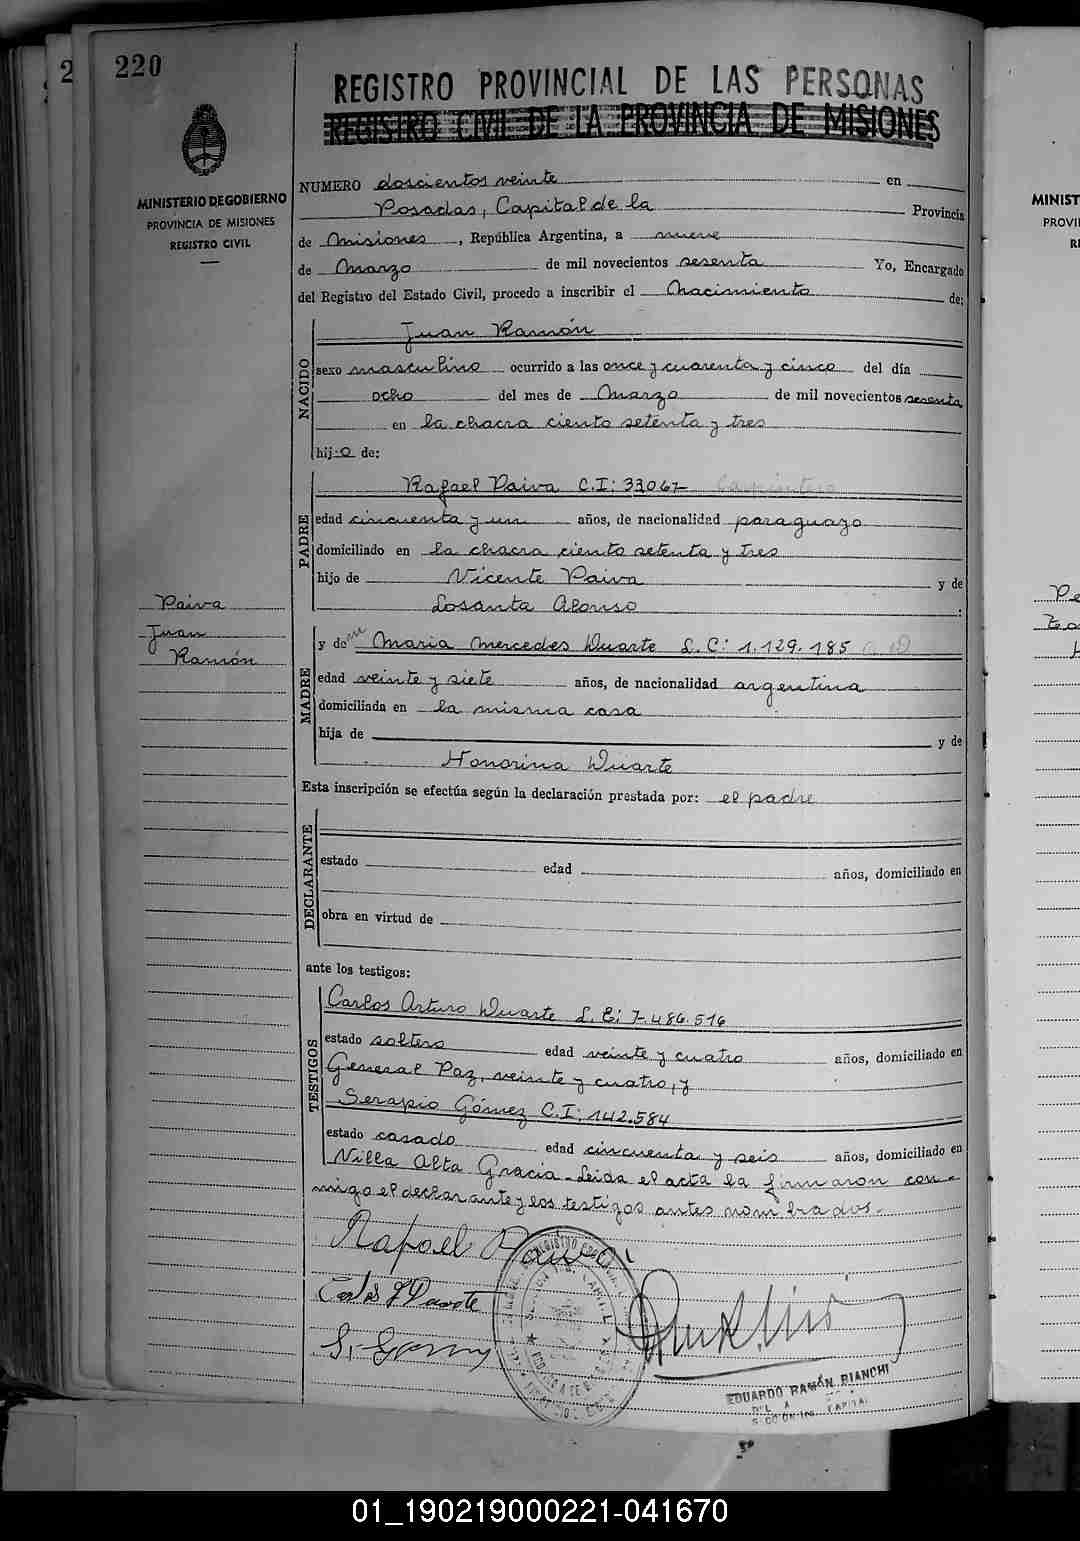 220
2
REGISTRO PROVINCIAL DE LAS PERSONAS
REGISTRO CIVIL DE LA PROVINCIA DE MISIONES
MINISTERIO DE GOBIERNO
PROVINCIA DE MISIONES
REGISTRO CIVIL
NUMERO doscientos veinte en
Posadas, Capital de la Provincia
de Misiones, República Argentina, a nueve
de Marzo de mil novecientos sesenta Yo, Encargado
del Registro del Estado Civil, procedo a inscribir el Nacimiento de:
NACIDO
Juan Ramón
sexo masculino ocurrido a las once y cuarenta y cinco del día
ocho del mes de Marzo de mil novecientos sesenta
en la chacra ciento setenta y tres
hijo de:
PADRE
Rafael Paiva C.I: 33067 Carpintero
edad cincuenta y un años, de nacionalidad paraguayo
domiciliado en la chacra ciento setenta y tres
hijo de Vicente Paiva y de
Losanta Alonso :
Paiva
Juan
Ramón
MADRE
y de Maria Mercedes Duarte L.C: 1.129.185
edad veinte y siete años, de nacionalidad argentina
domiciliada en la misma casa
hija de y de
Honorina Duarte
Esta inscripción se efectúa según la declaración prestada por: el padre
DECLARANTE
estado edad años, domiciliado en
obra en virtud de
ante los testigos:
TESTIGOS
Carlos Arturo Duarte L.E: 7.486.516
estado soltero edad veinte y cuatro años, domiciliado en
General Paz, veinte y cuatro, y
Serapio Gómez C.I: 142.584
estado casado edad cincuenta y seis años, domiciliado en
Villa Alta Gracia - Leida el acta la firmaron con-
migo el declarante y los testigos antes nombrados.-
Rafael Paiva
Carlos A Duarte
S. Gomez
EDUARDO RAMÓN BIANCHI
CAPITAL
MINIST
PROVI
R
01_190219000221-041670